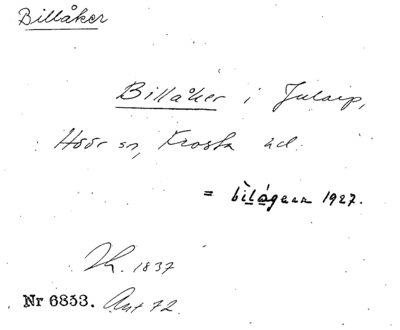 Billåker
Billåker i Jularp,
Höör sn, Frosta hd.
= bìlágean 1927.
1837
Nr 6853. Ant 72.